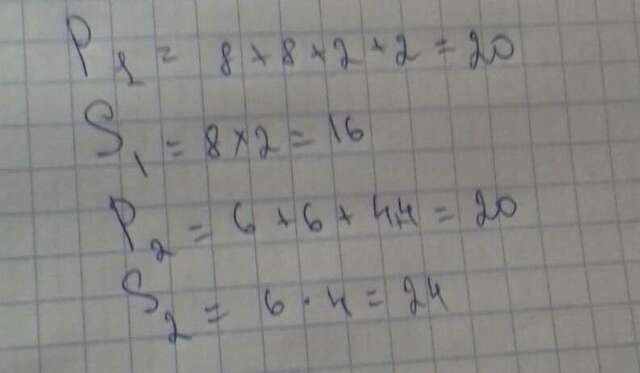 P₁ = 8+8+2+2 = 20
S₁ = 8×2 = 16
P₂ = 6+6+4,4 = 20
S₂ = 6·4 = 24